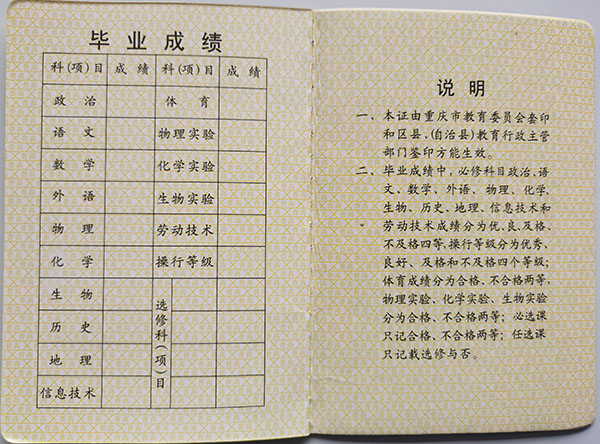 毕业成绩
科(项)目 成绩 科(项)目 成绩
政治 体育
语文 物理实验
数学 化学实验
外语 生物实验
物理 劳动技术
化学 操行等级
生物
历史
地理
信息技术
选修科(项)目
说明
一、本证由重庆市教育委员会套印
和区县、(自治县)教育行政主管
部门鉴印方能生效。
二、毕业成绩中，必修科目政治、语
文、数学、外语、物理、化学、
生物、历史、地理、信息技术和
劳动技术成绩分为优、良、及格、
不及格四等，操行等级分为优秀、
良好、及格和不及格四个等级；
体育成绩分为合格、不合格两等，
物理实验、化学实验、生物实验
分为合格、不合格两等；必选课
只记合格、不合格两等；任选课
只记载选修与否。